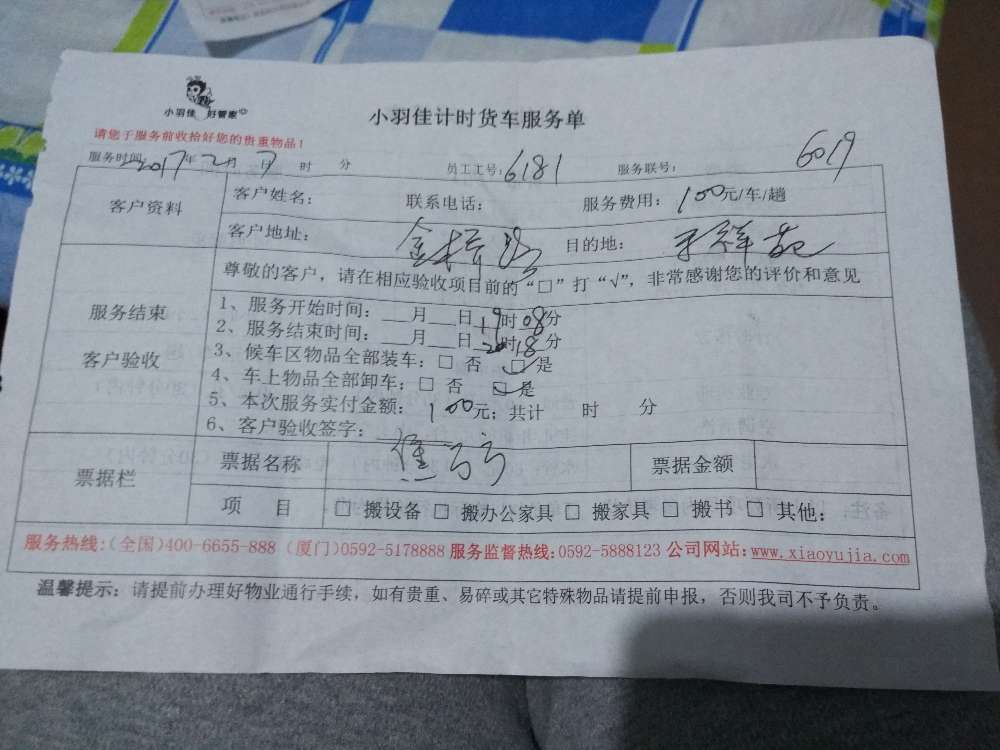 小羽佳 好管家
小羽佳计时货车服务单
请您于服务前收拾好您的贵重物品！
服务时间：2017年2月7日 时 分 员工工号：6181 服务联号：6019
客户资料
客户姓名： 联系电话： 服务费用：100元/车/趟
客户地址：金 路 目的地： 祥苑
服务结束
客户验收
尊敬的客户，请在相应验收项目前的“□”打“√”，非常感谢您的评价和意见
1、服务开始时间：__月__日19时08分
2、服务结束时间：__月__日20时18分
3、候车区物品全部装车：□ 否 ☑ 是
4、车上物品全部卸车：□ 否 ☑ 是
5、本次服务实付金额：100元；共计 时 分
6、客户验收签字：
票据栏
票据名称 票据金额
项 目 □ 搬设备 □ 搬办公家具 □ 搬家具 □ 搬书 □ 其他：
服务热线：(全国)400-6655-888 (厦门)0592-5178888 服务监督热线：0592-5888123 公司网站：www.xiaoyujia.com
温馨提示：请提前办理好物业通行手续，如有贵重、易碎或其它特殊物品请提前申报，否则我司不予负责。